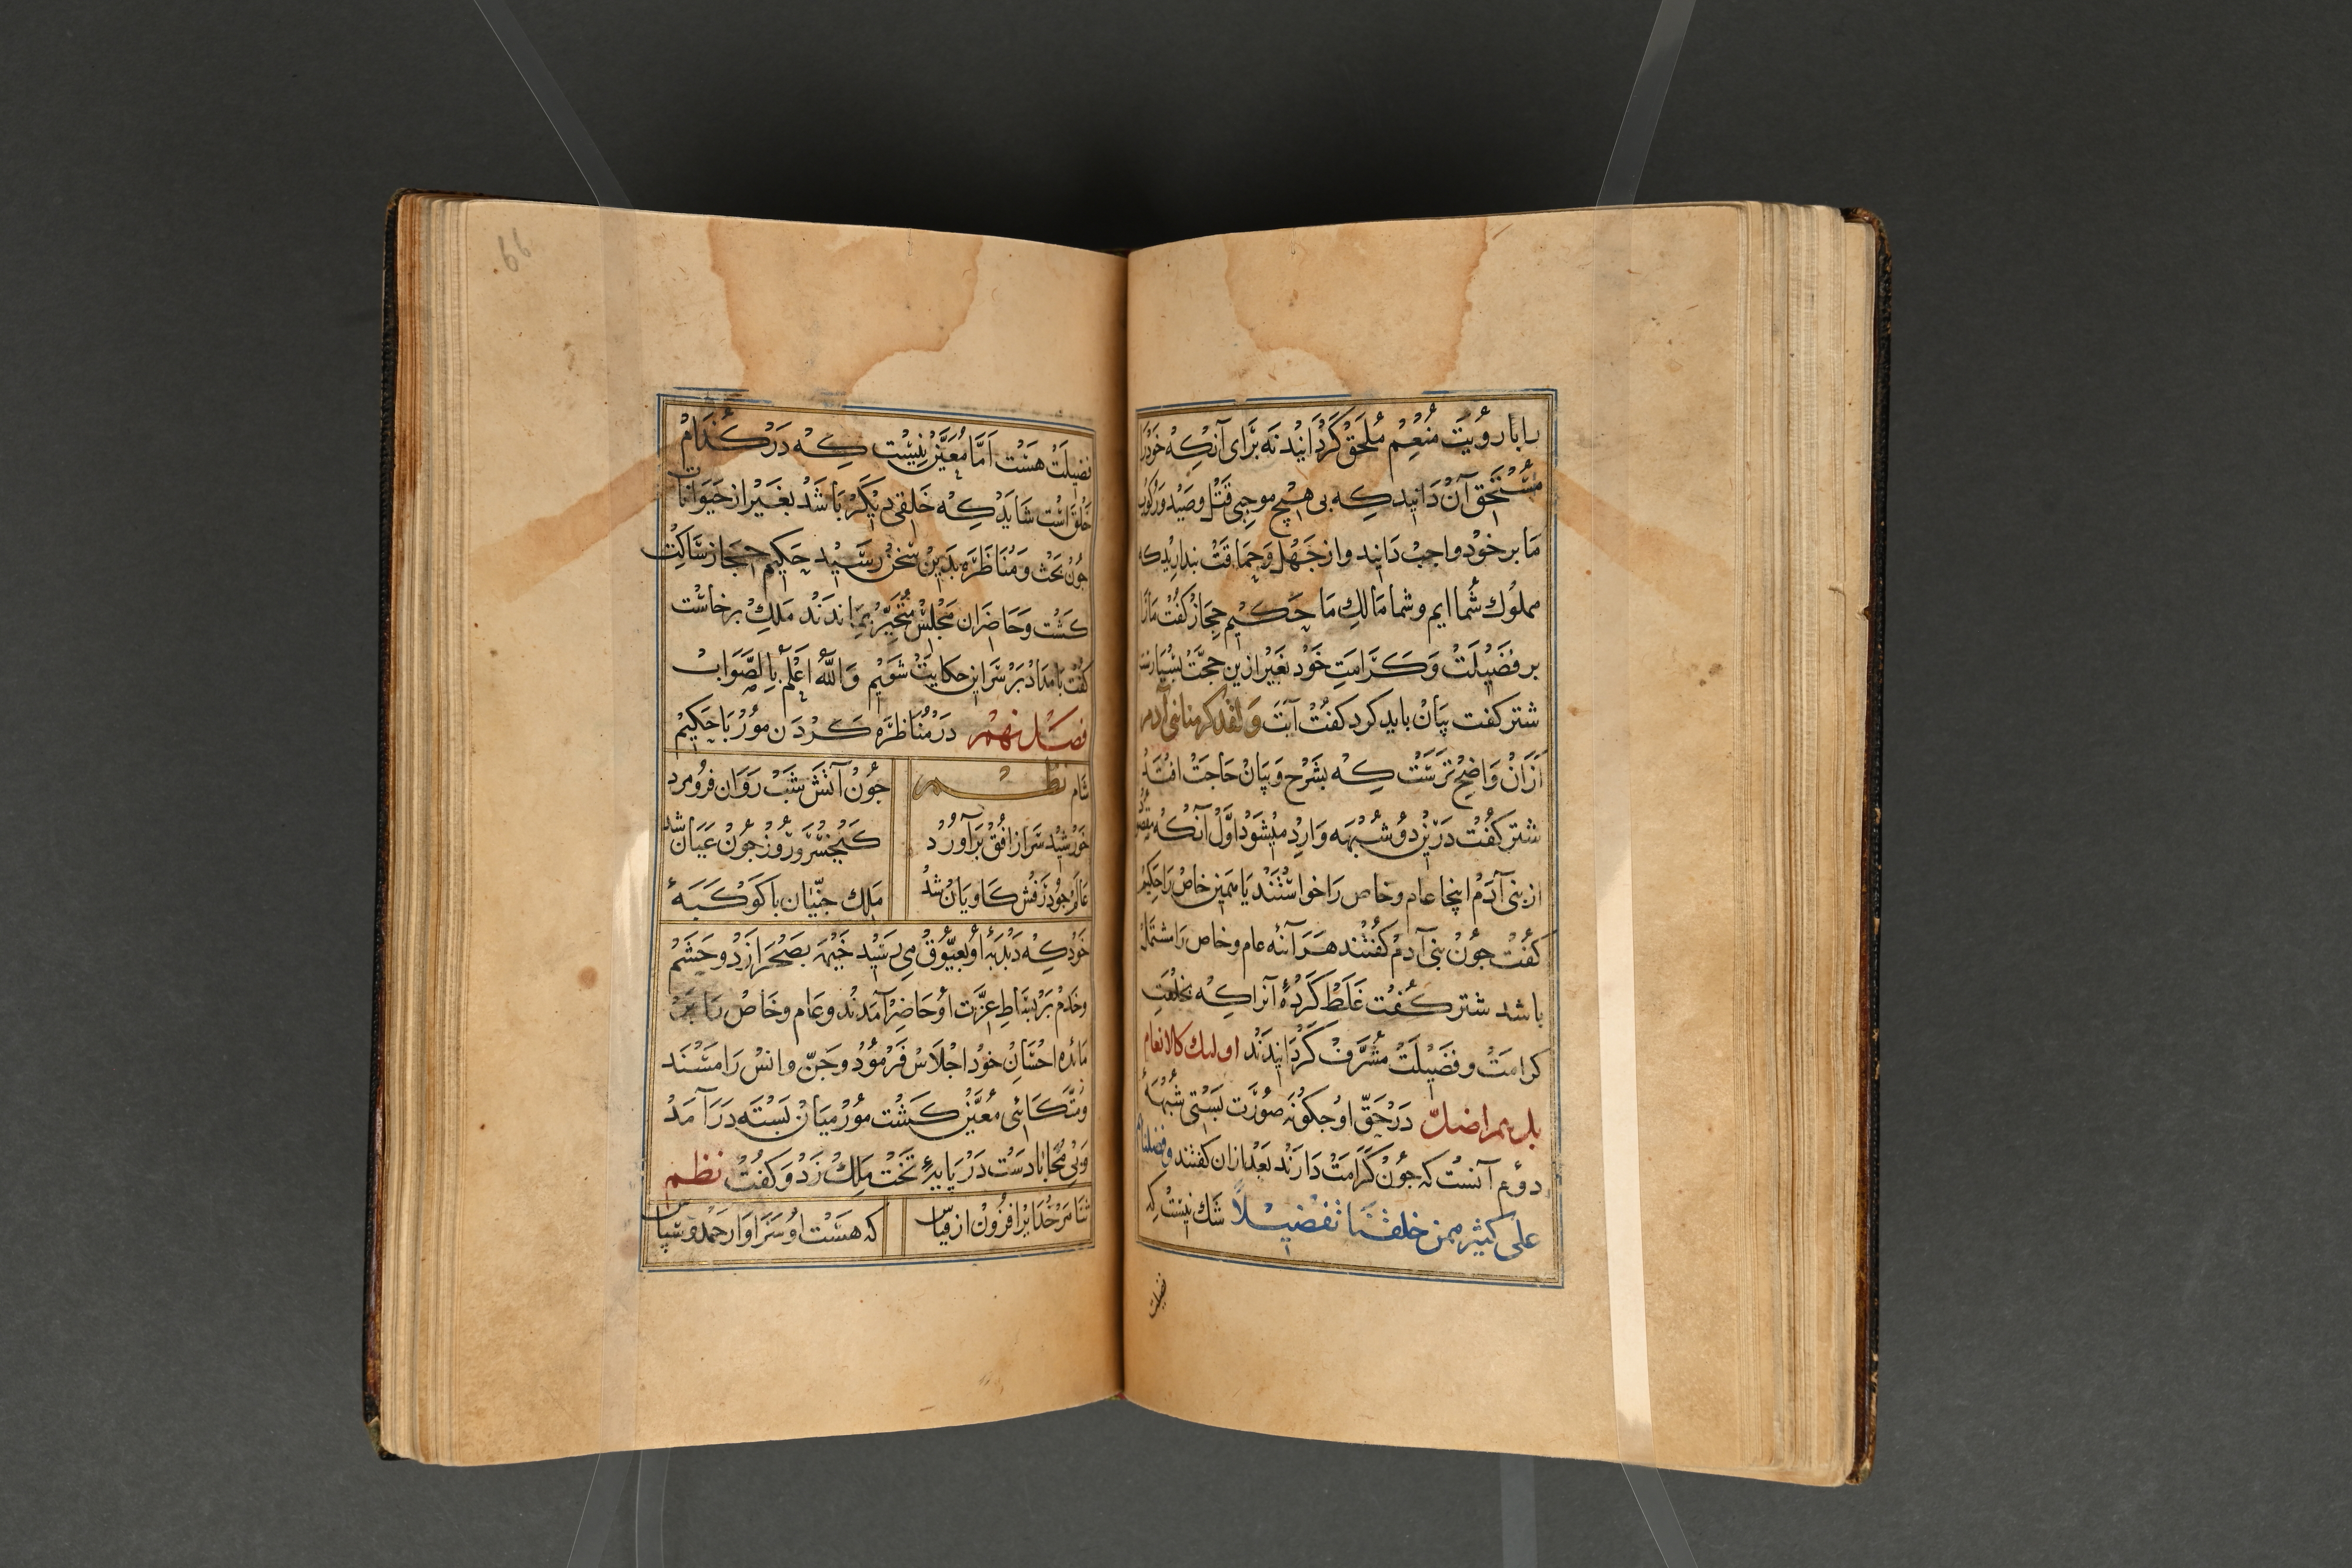 را با رؤیت منعم ملحق کردانید نه برای آنکه خود را
مستحق آن دانید که بی هیچ موجبی قتل و صید و رکوب
ما بر خود واجب دانید و از جهل و حماقت بندارید که
مملوک شما ایم و شما مالک ما حکیم حجاز کفت ما را
بر فضیلت و کرامت خود بغیر ازین حجت بسیارست
شتر کفت بیان باید کرد کفت آیت و لقد کرمنا بنی آدم
ازان واضح ترست که بشرح و بیان حاجت افتد
شتر کفت درین دو شبهه وارد میشود اول آنکه مقصود
از بنی آدم اینجا عام و خاص را خواستند یا همین خاص را حکیم
کفت جون بنی آدم کفتند هر آئنه عام و خاص را مشتمل
باشد شتر کفت غلط کردۀ آنرا که بخلعت
کرامت و فضیلت مشرف کردانیدند اولیک کالانعام
بل هم اضل در حق او جکونه صورت بستی شبهۀ
دوم آنست که جون کرامت دارند بعد ازان کفتند و فضلناهم
علی کثیر ممن خلقنا تفضیلاً شک نیست که
فضیلت
66
فضیلت هست اما معین نیست که در کدام
خلق است شاید که خلقی دیکر باشد بغیر از حیوانات
جون بحث و مناظره بدین سخن رسید حکیم حجاز ساکت
کشت و حاضران مجلس متحیر بماندند ملک برخاست
کفت بامداد بر سر این حکایت شویم والله اعلم بالصواب
فصل نهم در مناظره کردن مور با حکیم
شام نظم جون آتش شب روان فرو مرد
خورشید سر از افق برآورد کیخسرو روز جون عیان شد
عالم جو درفش کاویان شد ملک جنیان با کوکبۀ
خود که دبدبۀ او بعیوق می رسید خیمه بصحرا زد و حشم
و خدم بر بساط عزت او حاضر آمدند و عام و خاص را بر
مائده احسان خود اجلاس فرمود و جن و انس را مسند
و متکائی معین کشت مور میان بسته درآمد
و بی محابا دست در پایۀ تخت ملک زد و کفت نظم
ثنا مر خدایرا فزون از قیاس که هست او سزاوار حمد و سپاس